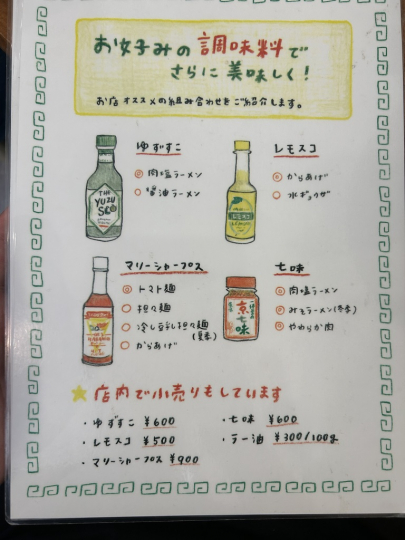 お好みの調味料で
さらに美味しく！
お店オススメの組み合わせをご紹介します。
ゆずすこ
◎ 肉塩ラーメン
○ 醤油ラーメン
THE
YUZU
SCO
レモスコ
◎ からあげ
○ 水ギョウザ
マリーシャープス
◎ トマト麺
○ 担々麺
○ 冷し豆乳担々麺
(夏季)
○ からあげ
七味
◎ 肉塩ラーメン
◎ みそラーメン(冬季)
○ やわらか肉
京
七味
★ 店内で小売りもしています
・ゆずすこ ¥600
・レモスコ ¥500
・マリーシャープス ¥900
・七味 ¥600
・ラー油 ¥300/100g